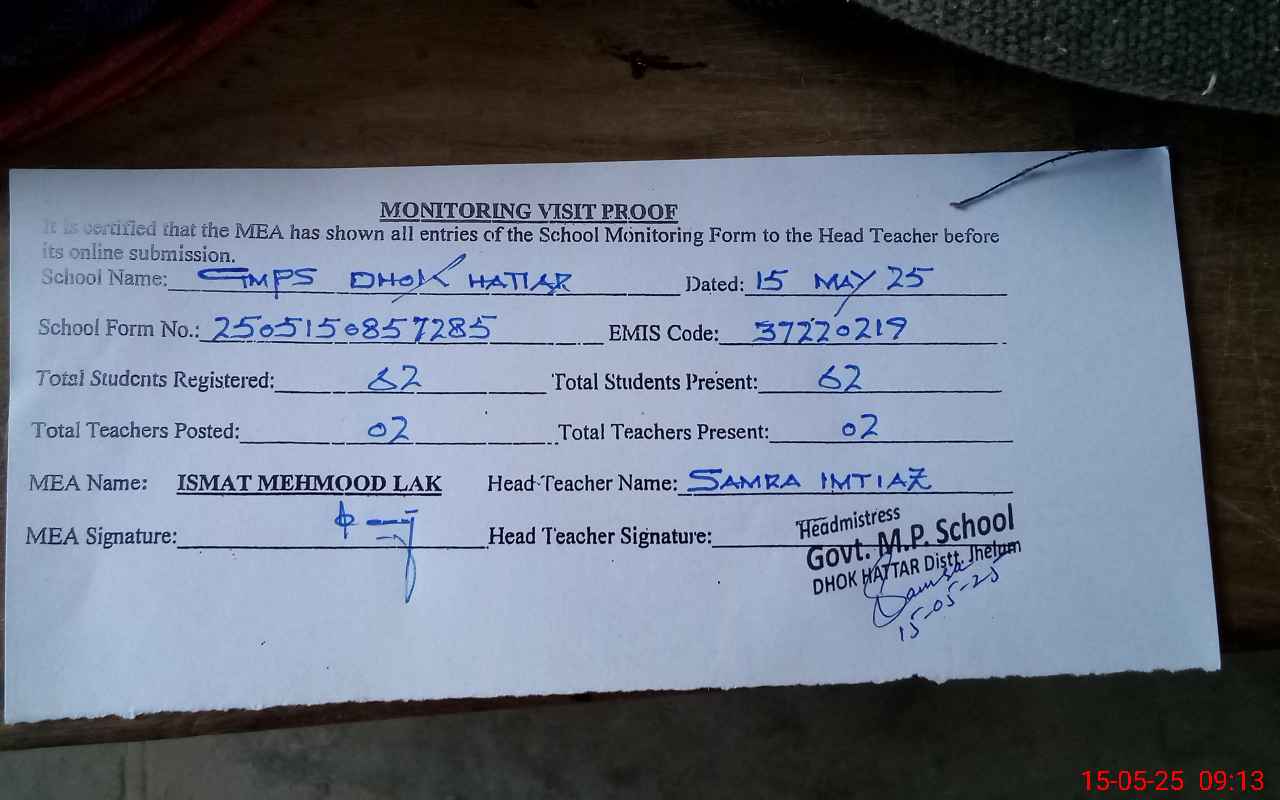 MONITORING VISIT PROOF
It is certified that the MEA has shown all entries of the School Monitoring Form to the Head Teacher before
its online submission.
School Name: GMPS DHOK HATTAR Dated: 15 MAY 25
School Form No.: 2505150857285 EMIS Code: 37220219
Total Students Registered: 62 Total Students Present: 62
Total Teachers Posted: 02 Total Teachers Present: 02
MEA Name: ISMAT MEHMOOD LAK Head Teacher Name: SAMRA IMTIAZ
MEA Signature: Head Teacher Signature:
Headmistress
Govt. M.P. School
DHOK HATTAR Distt. Jhelum
Samra
15-05-25
15-05-25 09:13